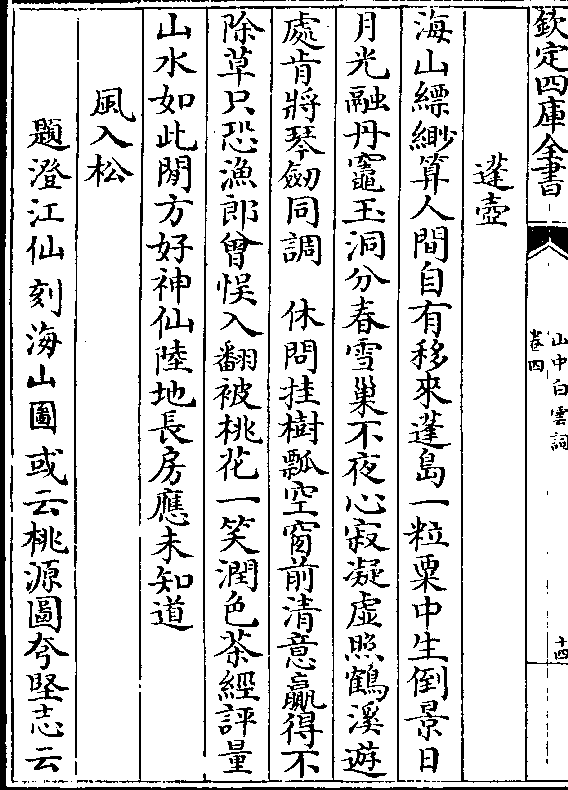 欽定四庫全書
山中白雲詞
卷四
十四
蓬壺
海山縹緲算人間自有移來蓬島一粒粟中生倒景日
月光融丹竈玉洞分春雪巢不夜心寂凝虛照鶴溪遊
處肯將琴劒同調　休問挂樹瓢空窗前清意贏得不
除草只恐漁郎曾悞入翻被桃花一笑潤色茶經評量
山水如此閒方好神仙陸地長房應未知道
風入松
題澄江仙刻海山圖或云桃源圖夸堅志云